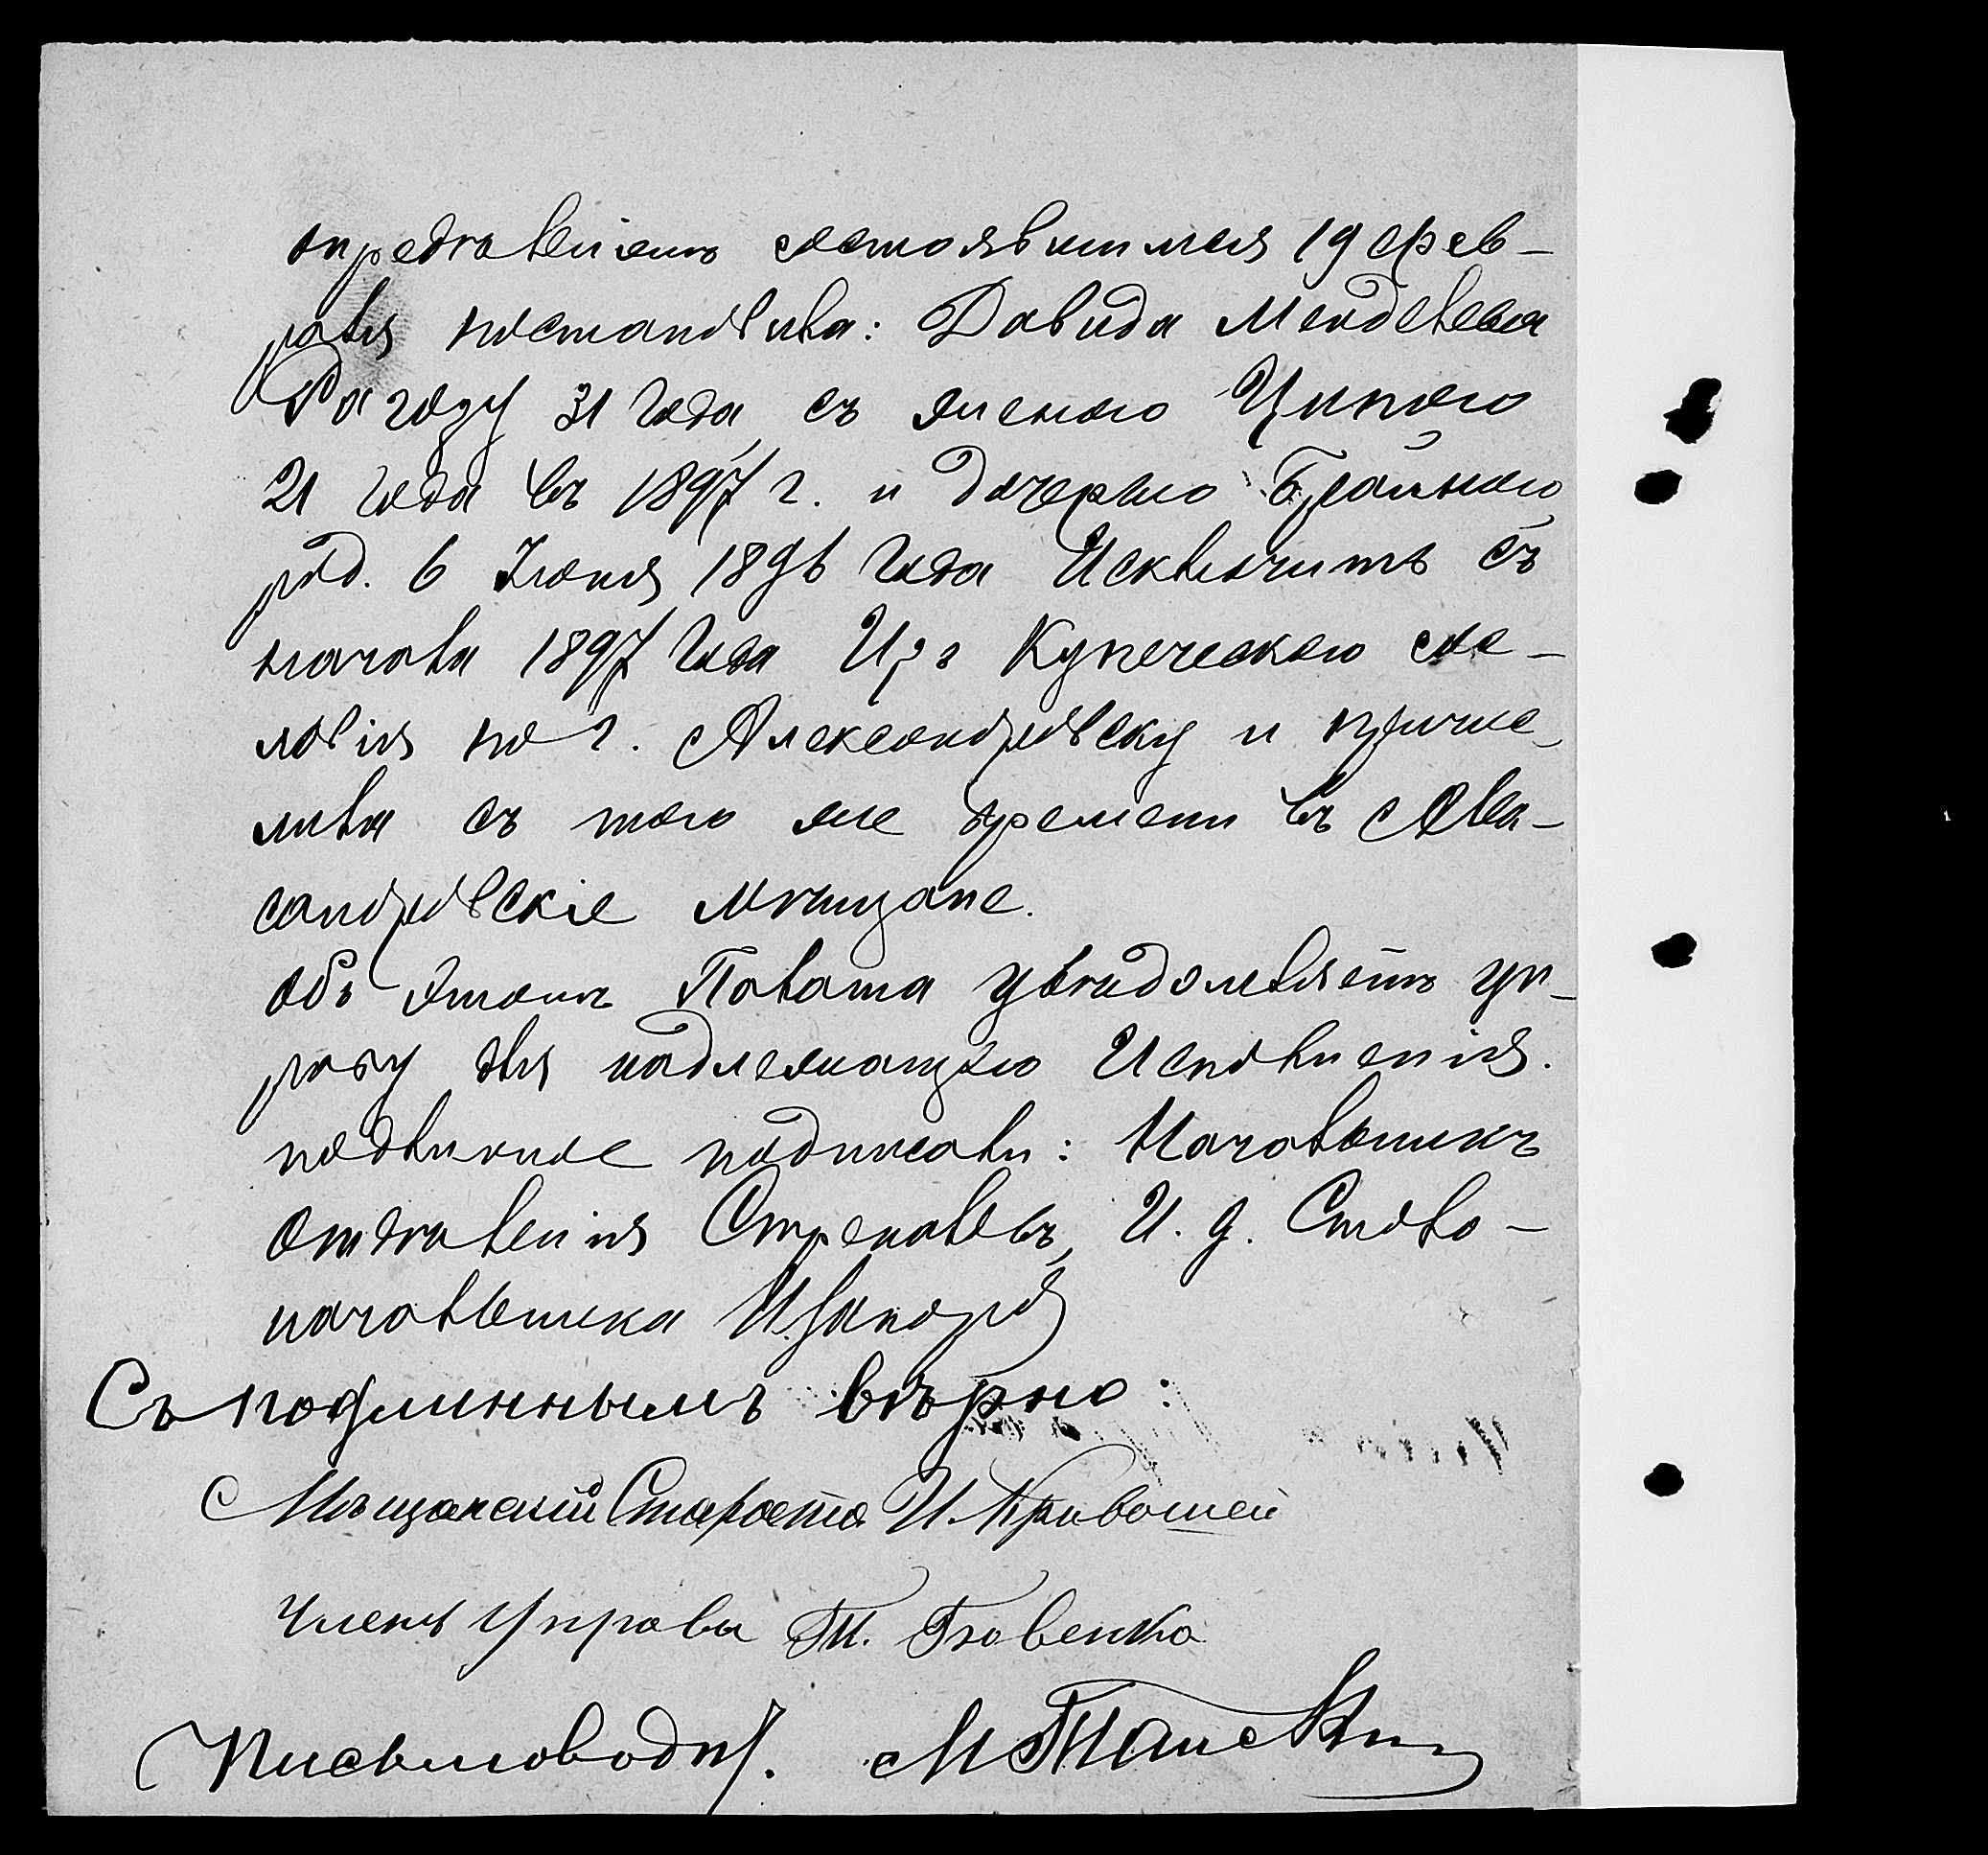 опредѣленіемъ состоявшимся 19 фев-
раля постановила: Давида Менделева
Рагозу 31 года, съ женою Ципою
21 года въ 1897 г. и дочерью Брайною,
род. 6 Іюня 1896 года Исключить съ
начала 1897 года Изъ Купеческаго сос-
ловія по г. Александровску и причис-
лила съ того же времени въ Алек-
сандровскіе мѣщане.
Объ этомъ Палата увѣдомляетъ Уп-
раву для надлежащаго Исполненія.
подлинное подписали: Начальникъ
Отдѣленія Стрекаловъ, И. д. Столо-
начальника
Съ подлиннымъ вѣрно:
Мѣщанскій Староста И. Кривошей
Членъ Управы Т. Бовенко
Письмовод.